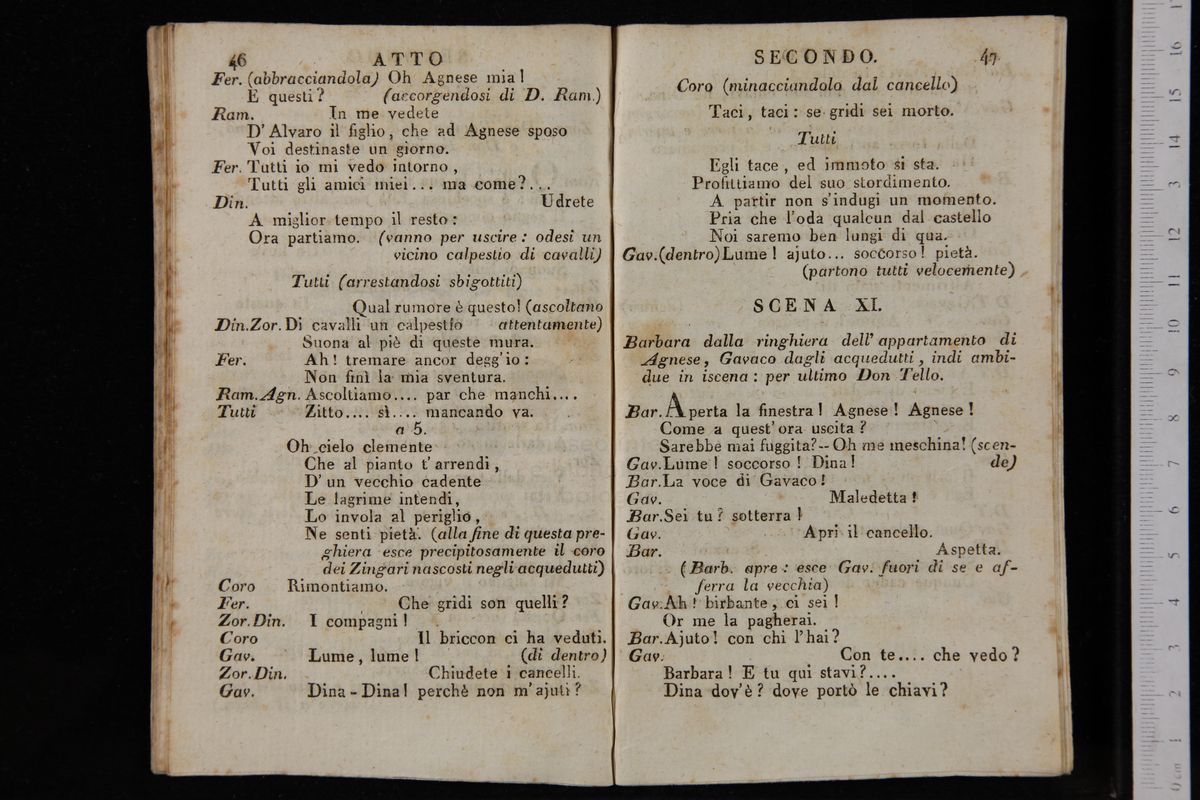 46 ATTO
Fer. (abbracciandola) Oh Agnese mia!
E questi? (accorgendosi di D. Ram.)
Ram. In me vedete
D'Alvaro il figlio, che ad Agnese sposo
Voi destinaste un giorno.
Fer. Tutti io mi vedo intorno,
Tutti gli amici miei... ma come?...
Din. Udrete
A miglior tempo il resto:
Ora partiamo. (vanno per uscire: odesi un
vicino calpestio di cavalli)
Tutti (arrestandosi sbigottiti)
Qual rumore è questo! (ascoltano
Din.Zor. Di cavalli un calpestío attentamente)
Suona al piè di queste mura.
Fer. Ah! tremare ancor degg'io:
Non finì la mia sventura.
Ram.Agn. Ascoltiamo.... par che manchi....
Tutti Zitto.... sì.... mancando va.
a 5.
Oh cielo clemente
Che al pianto t'arrendi,
D'un vecchio cadente
Le lagrime intendi,
Lo invola al periglio,
Ne senti pietà. (alla fine di questa pre-
ghiera esce precipitosamente il coro
dei Zingari nascosti negli acquedutti)
Coro Rimontiamo.
Fer. Che gridi son quelli?
Zor.Din. I compagni!
Coro Il briccon ci ha veduti.
Gav. Lume, lume! (di dentro)
Zor.Din. Chiudete i cancelli.
Gav. Dina - Dina! perchè non m'ajuti?
SECONDO. 47
Coro (minacciandolo dal cancello)
Taci, taci: se gridi sei morto.
Tutti
Egli tace, ed immoto si sta.
Profittiamo del suo stordimento.
A partir non s'indugi un momento.
Pria che l'oda qualcun dal castello
Noi saremo ben lungi di qua.
Gav.(dentro) Lume! ajuto... soccorso! pietà.
(partono tutti velocemente)
SCENA XI.
Barbara dalla ringhiera dell'appartamento di
Agnese, Gavaco dagli acquedutti, indi ambi-
due in iscena: per ultimo Don Tello.
Bar. Aperta la finestra! Agnese! Agnese!
Come a quest'ora uscita?
Sarebbe mai fuggita?-- Oh me meschina! (scen-
Gav. Lume! soccorso! Dina! de)
Bar. La voce di Gavaco!
Gav. Maledetta!
Bar. Sei tu? sotterra!
Gav. Apri il cancello.
Bar. Aspetta.
(Barb. apre: esce Gav. fuori di se e af-
ferra la vecchia)
Gav. Ah! birbante, ci sei!
Or me la pagherai.
Bar. Ajuto! con chi l'hai?
Gav. Con te.... che vedo?
Barbara! E tu qui stavi?....
Dina dov'è? dove portò le chiavi?
17
16
15
14
13
12
11
10
9
8
7
6
5
4
3
2
1
0 cm